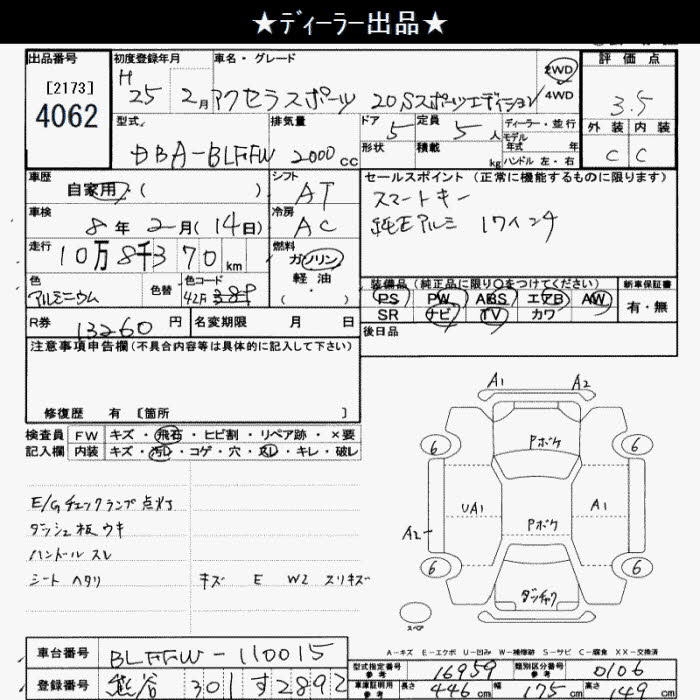 ★ディーラー出品★
出品番号 初度登録年月 車名・グレード 2WD 評価点
[2173] H 25 2月 アクセラスポーツ 20Sスポーツエディション 4WD 3.5
4062 型式 排気量 ドア 定員 ディーラー・並行 外装 内装
DBA-BLFFW 2000cc 5 5人 モデル年式 年 C C
形状 積載 kg ハンドル 左・右
車歴 シフト セールスポイント (正常に機能するものに限ります)
自家用 ( ) AT スマートキー
車検 冷房 純正アルミ 17インチ
8年 2月 (14日) AC
走行 燃料
10万8千370km ガソリン
軽油
( ・ )
色 色替 色コード 装備品 (純正品に限り○をつけてください) 新車保証書
アルミニウム 42A 38P PS PW ABS エアB AW 有・無
SR ナビ TV カワ
R券 13260円 名変期限 月 日 後日品
注意事項申告欄 (不具合内容等は具体的に記入して下さい)
修復歴 有 [箇所 ]
検査員 FW キズ・飛石・ヒビ割・リペア跡・×要
記入欄 内装 キズ・汚レ・コゲ・穴・スレ・キレ・破レ
E/Gチェックランプ点灯
ダッシュ板ウキ
ハンドルスレ
シートヘタリ キズ E W2 スリキズ
A1 A2
6 Pボケ 6
UA1 A1
A2 Pボケ
6 6
ダッチャク
スペア
A-キズ E-エクボ U-凹み W-補修跡 S-サビ C-腐食 XX-交換済
車台番号 BLFFW-110015
型式指定番号 参考 16959 類別区分番号 参考 0106
登録番号 熊谷 301 す2892
車庫証明用 参考 長さ 446cm 幅 175cm 高さ 149cm